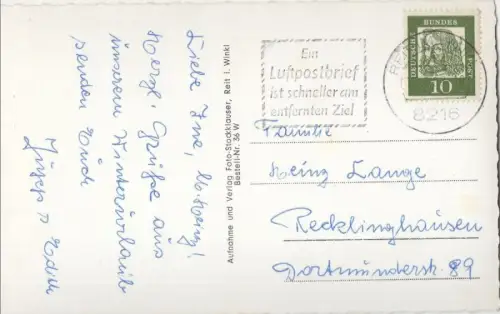 Liebe Ine, lb. Heinz!
Herzl. Grüße aus
unserem Winterurlaub
senden Euch
Edith
Aufnahme und Verlag Foto-Stocklauser, Reit i. Winkl
Bestell-Nr. 36 W
Ein
Luftpostbrief
ist schneller am
entfernten Ziel
DEUTSCHE BUNDESPOST
10
8216
Familie
Heinz Lange
Recklinghausen
Dortmunderstr. 89